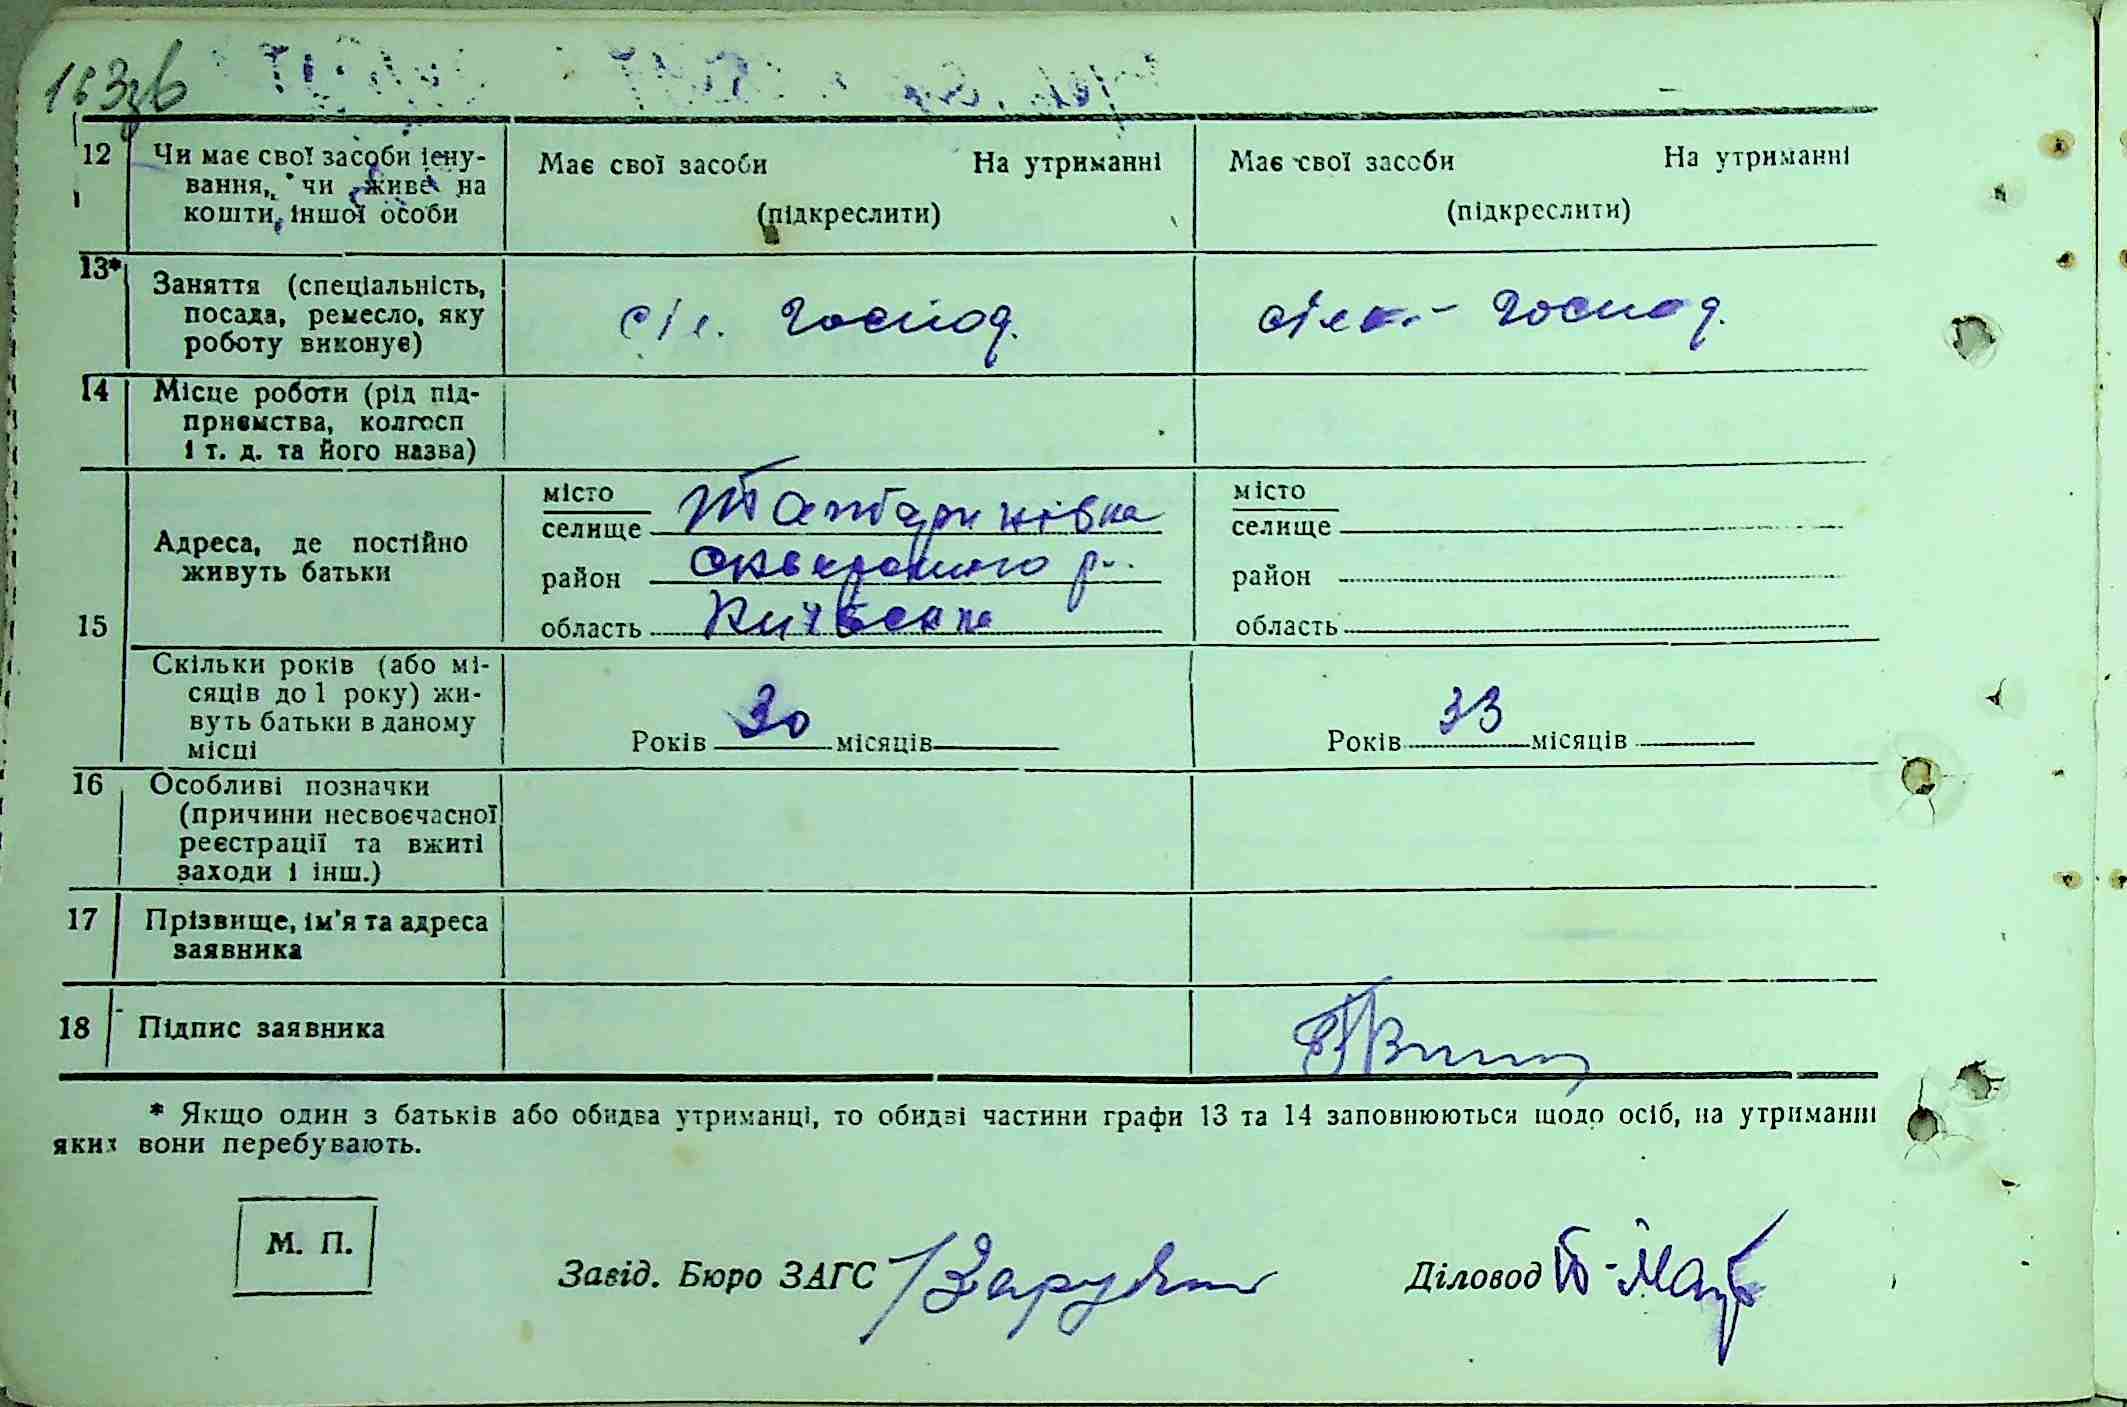 163зв
12 Чи має свої засоби існу-
вання, чи живе на
кошти іншої особи
Має свої засоби На утриманні
(підкреслити)
Має свої засоби На утриманні
(підкреслити)
13* Заняття (спеціальність,
посада, ремесло, яку
роботу виконує)
сіл. господ.
сільс.- господ.
14 Місце роботи (рід під-
приємства, колгосп
і т. д. та його назва)
15
Адреса, де постійно
живуть батьки
місто
селище
район
область Київська
місто
селище
район
область
Скільки років (або мі-
сяців до 1 року) жи-
вуть батьки в даному
місці
Років 30 місяців
Років 33 місяців
16 Особливі позначки
(причини несвоєчасної
реєстрації та вжиті
заходи і інш.)
17 Прізвище, ім'я та адреса
заявника
18 Підпис заявника
* Якщо один з батьків або обидва утриманці, то обидві частини графи 13 та 14 заповнюються щодо осіб, на утриманні
яких вони перебувають.
М. П.
Завід. Бюро ЗАГС
Діловод